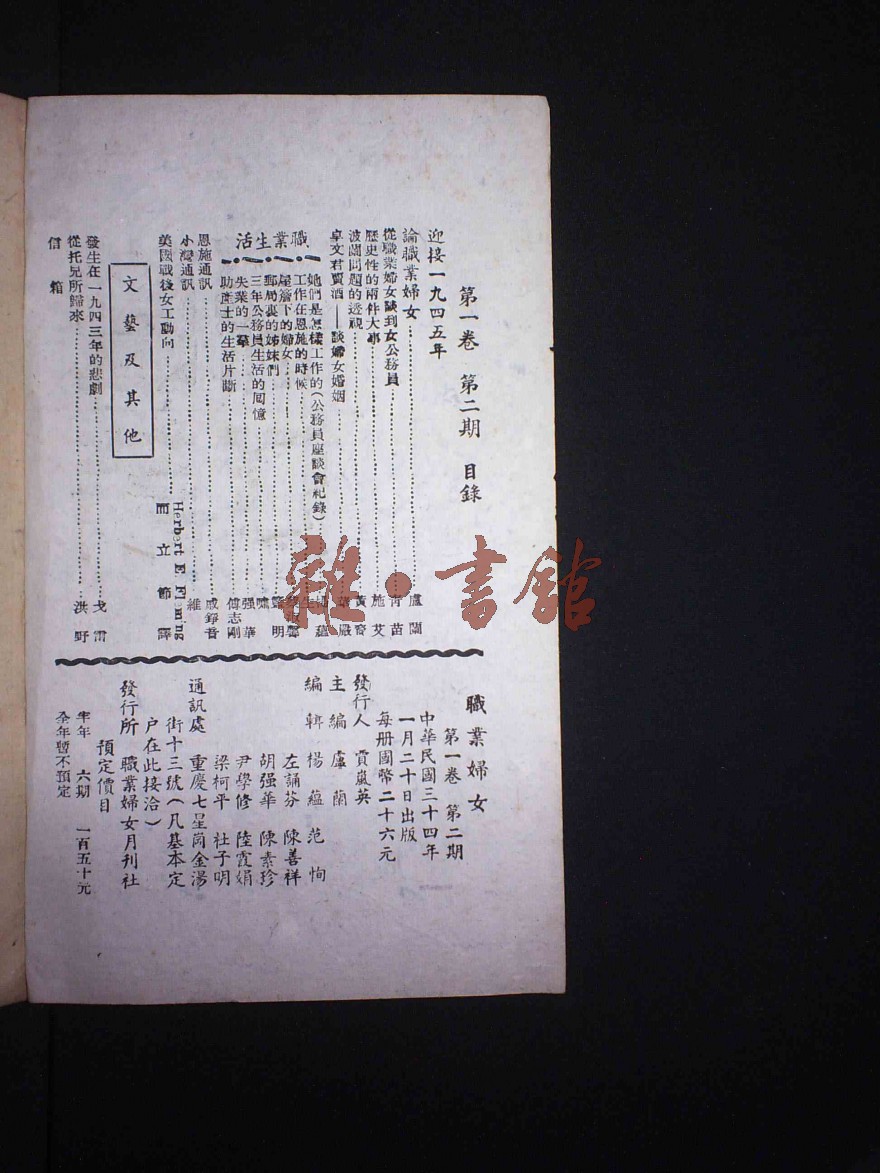 第一卷 第二期 目錄
迎接一九四五年
論職業婦女 盧蘭
從職業婦女談到女公務員 青苗
歷史性的兩件大事 施艾
波蘭問題的透視 黃裔
卓文君賣酒——談婦女婚姻 嚴
職業生活
她們是怎樣工作的(公務員座談會紀錄) 蘊
工作在恩施的時候 生
屋簷下的婦女
郵局裏的姊妹們 明
三年公務員生活的囘憶 嘯
失業的一羣 强華
助產士的生活片斷 傅志剛
恩施通訊 戚錚音
小灣通訊 維
美國戰後女工動向 Herbert E. Fleming 而立節譯
文藝及其他
發生在一九四三年的悲劇 戈雷
從托兒所歸來 洪野
信箱
職業婦女
第一卷 第二期
中華民國三十四年
一月二十日出版
每册國幣二十六元
發行人 賈嵐英
主編 盧蘭
編輯 楊蘊 范恂
左誦芬 陳善祥
胡强華 陳素珍
尹學修 陸霞娟
梁柯平 杜子明
通訊處 重慶七星岡金湯
街十三號(凡基本定
户在此接洽)
發行所 職業婦女月刊社
預定價目
半年 六期 一百五十元
全年暫不預定
雜·書館